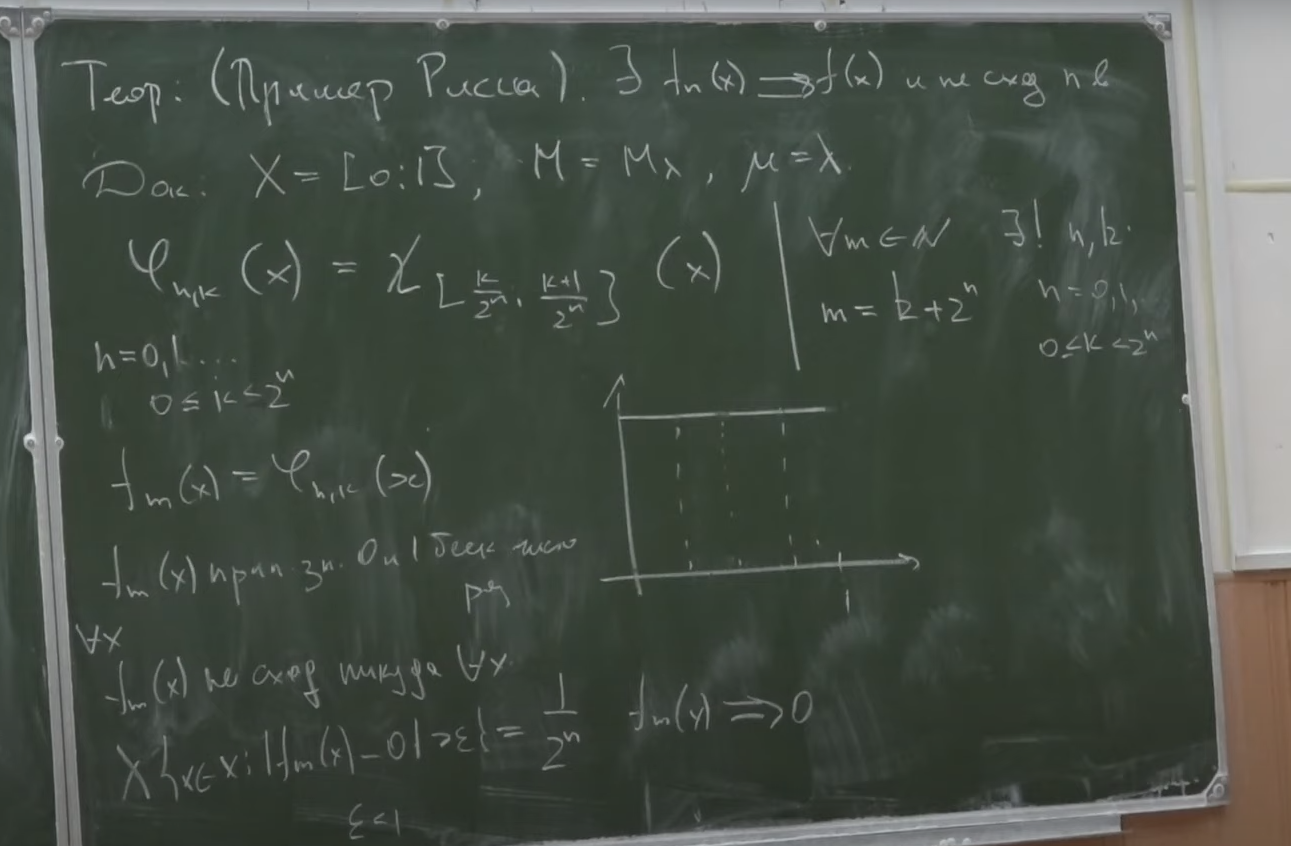 Теор: (Пример Рисса). ∃ fn(x) ⇒ f(x) и не сход п в
Док: X = [0:1], M = Mλ, μ = λ.
φn,k (x) = χ[k/2^n, k+1/2^n] (x)
n=0,1...
0 ≤ k < 2^n
∀m ∈ N ∃! n,k:
m = k + 2^n n=0,1,..
0 ≤ k < 2^n
fm(x) = φn,k (x)
fm(x) прин. зн. 0 и 1 беск число
раз
∀x
fm(x) не сход никуда ∀x.
λ{x∈X: |fm(x) - 0| > ε} = 1/2^n fm(x) ⇒ 0
ε < 1
1